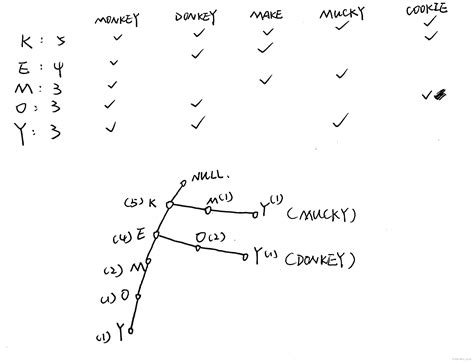 MONKEY DONKEY MAKE MUCKY COOKIE
K: 5 ✓ ✓ ✓ ✓ ✓
E: 4 ✓ ✓ ✓ ✓
M: 3 ✓ ✓ ✓
O: 3 ✓ ✓ ✓
Y: 3 ✓ ✓ ✓
NULL.
(5) K M(1) Y(1) (MUCKY)
(4) E O(2) Y(1) (DONKEY)
(2) M
(1) O
(1) Y